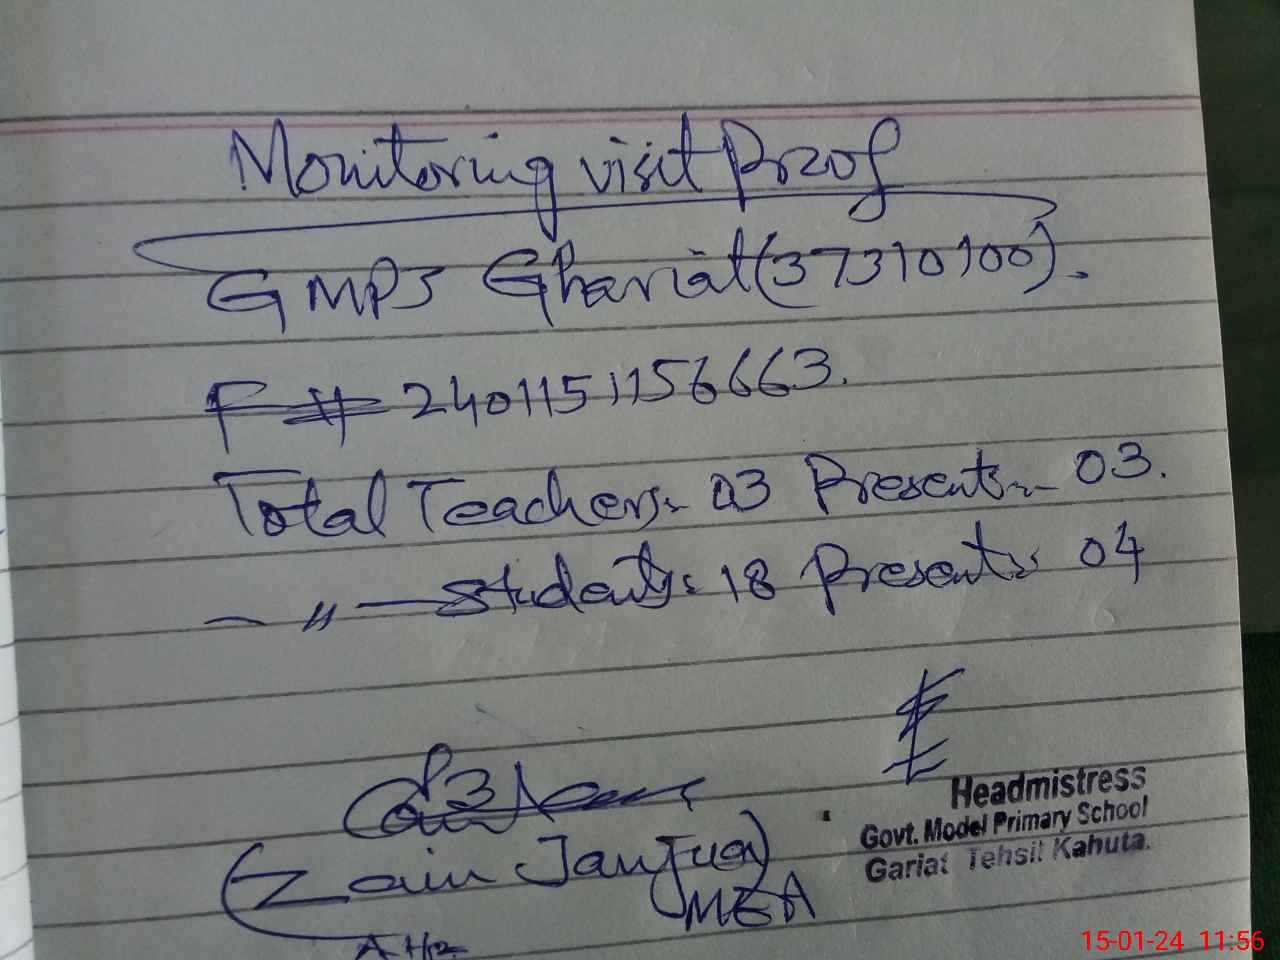 Monitoring visit Proof
GMPS Ghariat (37310100).
F# 2401151156663.
Total Teachers:- 03 Present:- 03.
-〃- Students:- 18 Present:- 04
(Zain Janjua)
MEA
Headmistress
Govt. Model Primary School
Gariat Tehsil Kahuta.
15-01-24 11:56